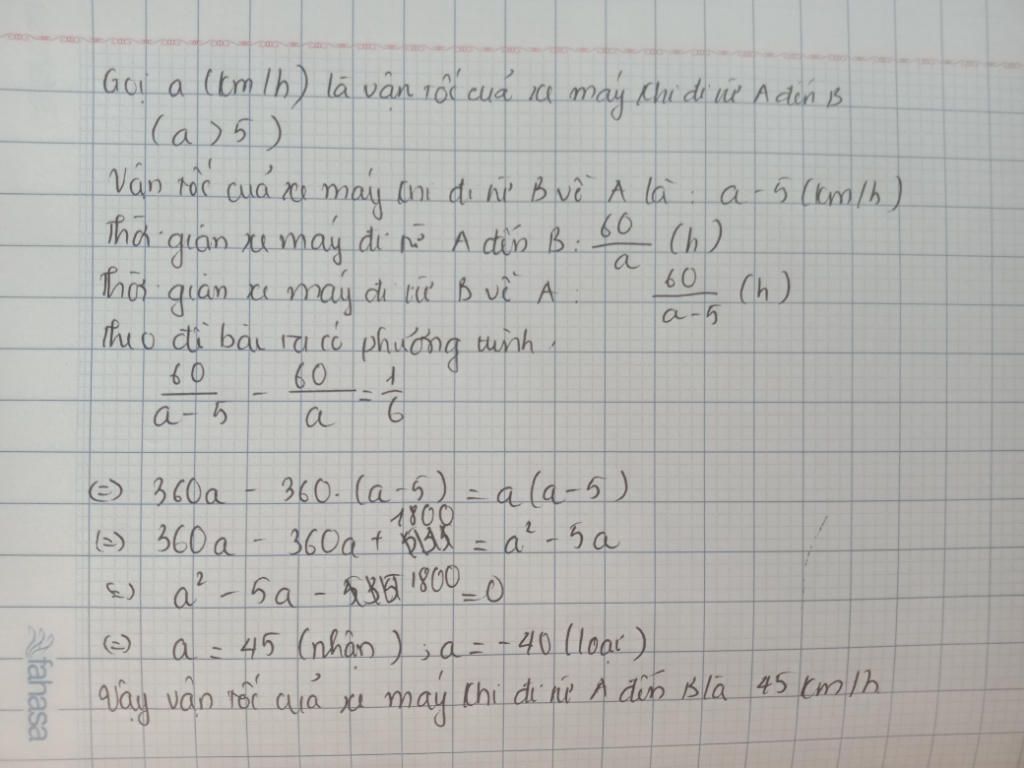 Gọi a (km/h) là vận tốc của xe máy khi đi từ A đến B
(a > 5)
Vận tốc của xe máy khi đi từ B về A là : a - 5 (km/h)
Thời gian xe máy đi từ A đến B : 60/a (h)
Thời gian xe máy đi từ B về A : 60/(a-5) (h)
Theo đề bài ta có phương trình :
60/(a-5) - 60/a = 1/6
(=) 360a - 360.(a-5) = a(a-5)
(=) 360a - 360a + 1800 = a² - 5a
(=) a² - 5a - 1800 = 0
(=) a = 45 (nhận) ; a = -40 (loại)
Vậy vận tốc của xe máy khi đi từ A đến B là 45 km/h
fahasa